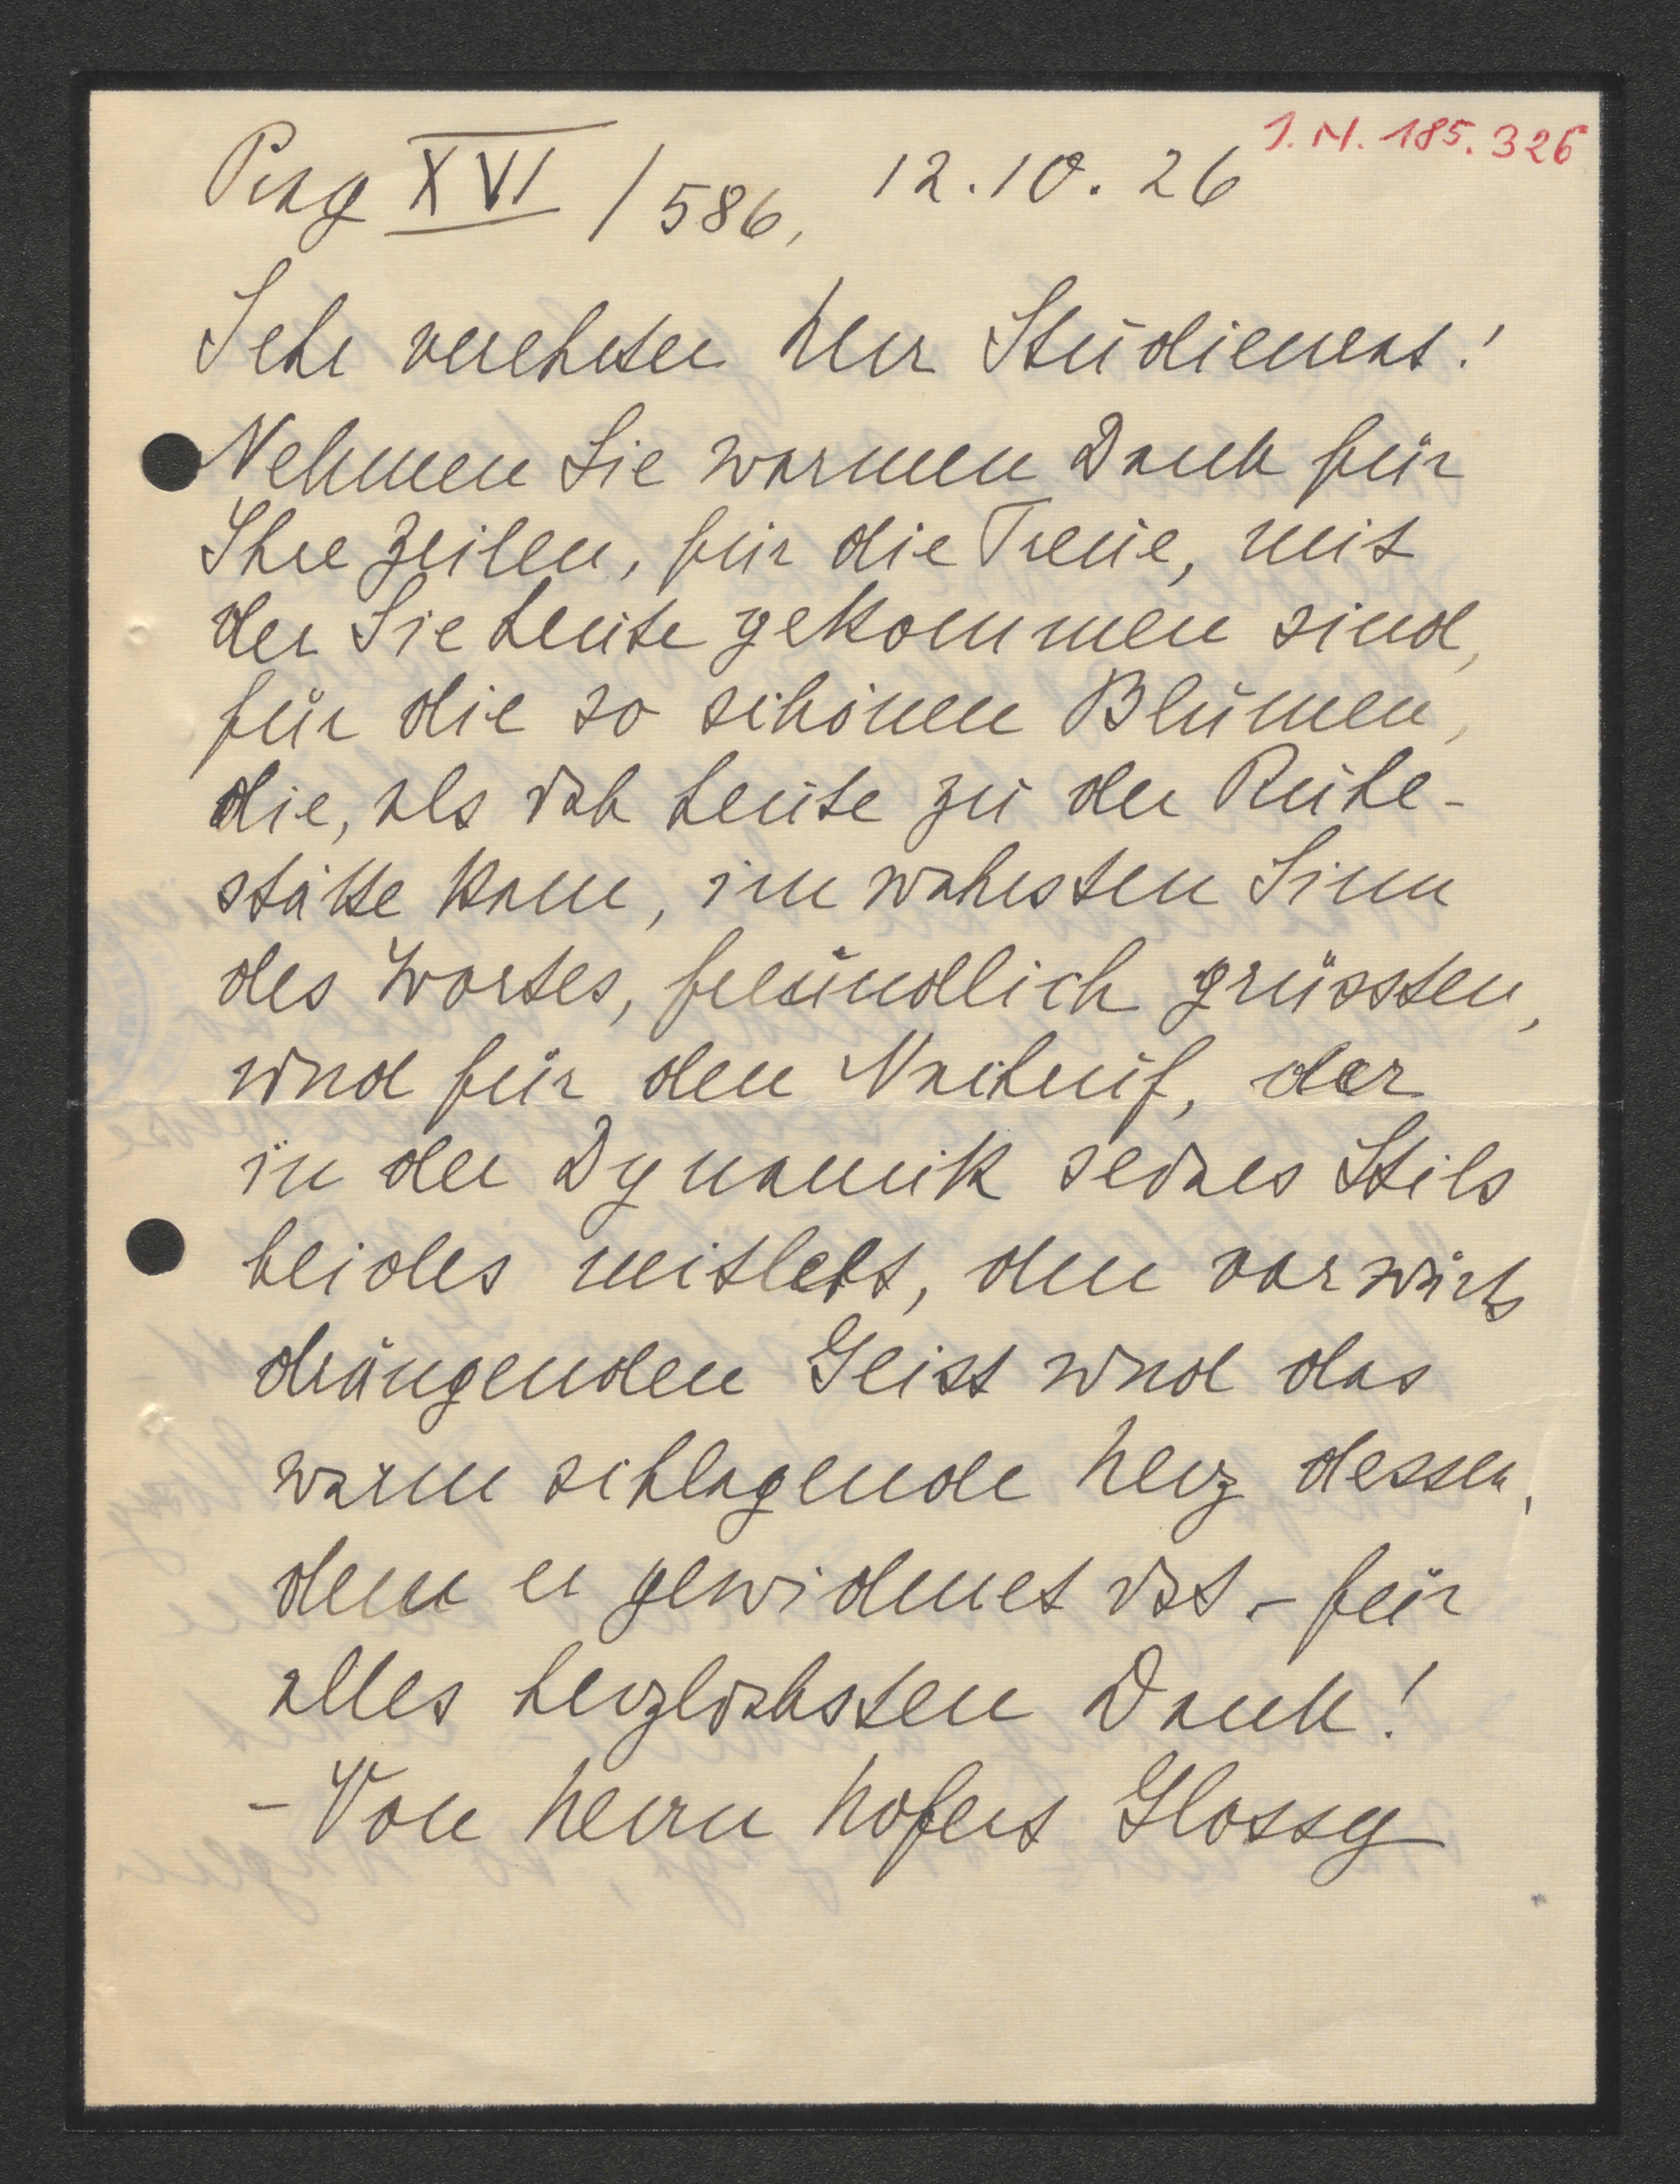 Prag XVI / 586, 12.10.26
J.N. 185.326
Sehr verehrter Herr Studienrat!
Nehmen Sie warmen Dank für
Ihre Zeilen, für die Treue, mit
der Sie heute gekommen sind,
für die so schönen Blumen,
die, als ich heute zu der Ruhe-
stätte kam, im wahrsten Sinn
des Wortes, freundlich grüssten,
und für den Nachruf, der
in der Dynamik seines Stils
beides mitlebt, den vorwärts
drängenden Geist und das
warm schlagende Herz dessen,
dem er gewidmet ist – für
alles herzlichsten Dank!
– Von Herrn Hofrat Glossy